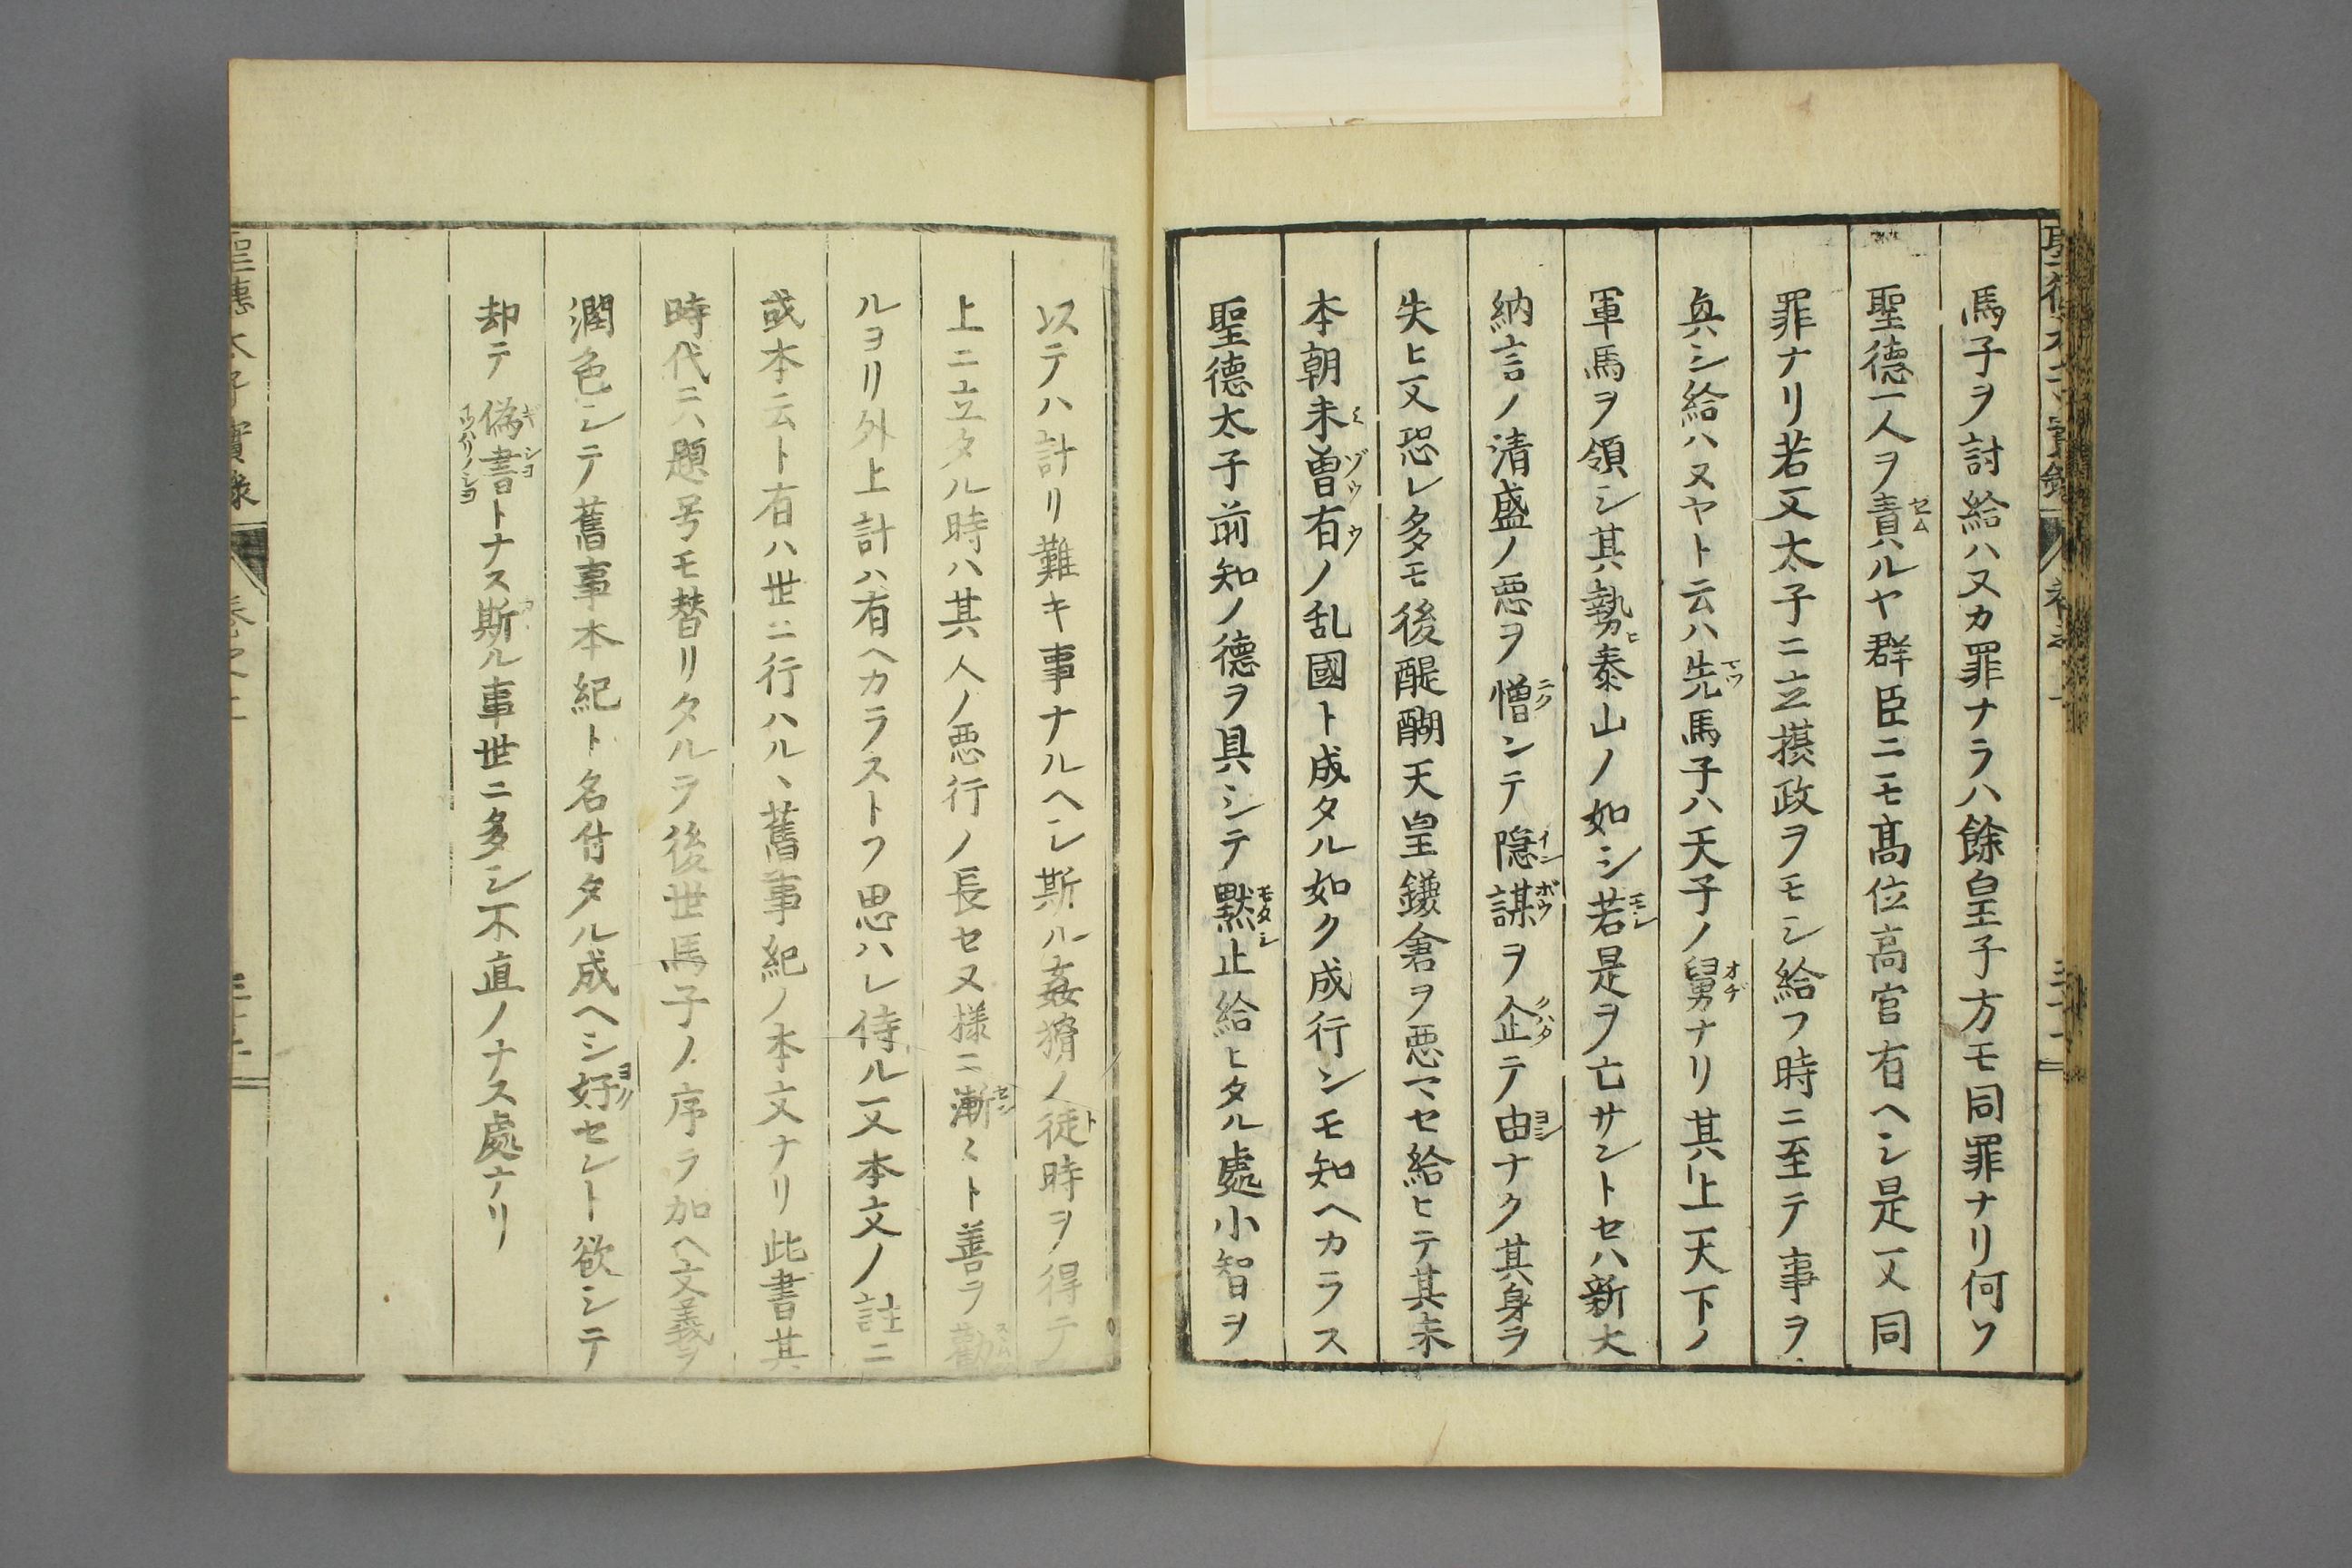 馬子ヲ討給ハヌカ罪ナラハ餘皇子方モ同罪ナリ何ソ
聖德一人ヲ責ハルヤ群臣ニモ髙位高官有ヘシ是又同
罪ナリ若又太子ニ立摂政ヲモシ給フ時ニ至テ事ヲ
與シ給ハヌヤト云ハ先馬子ハ天子ノ舅ナリ其上一天下ノ
軍馬ヲ領シ其勢ヒ泰山ノ如シ若是ヲ亡サントセハ新大
納言ノ清盛ノ悪ヲ憎ンテ隠謀ヲ企テ由ナク其身ヲ
失ヒ又恐レ多モ後醍醐天皇鎌倉ヲ悪マセ給ヒテ其末
本朝未曽有ノ乱國ト成タル如ク成行ンモ知ヘカラス
聖德太子前知ノ德ヲ具シテ黙止給ヒタル處小智ヲ
以テハ計リ難キ事ナルヘシ斯ル姦猾ノ徒時ヲ得テ
上ニ立タル時ハ其人ノ悪行ノ長セヌ様ニ漸〻ト善ヲ勸
ルヨリ外上計ハ有ヘカラストフ思ハレ侍ル又本文ノ註ニ
或本云ト有ハ世ニ行ハルヽ舊事紀ノ本文ナリ此書其
時代ニハ題号モ替リタルヲ後世馬子ノ序ヲ加ヘ文義ヲ
潤色シテ舊事本紀ト名付タル成ヘシ好セント欲シテ
却テ偽書トナス斯ル事世ニ多シ不直ノナス處ナリ
聖德太子實錄